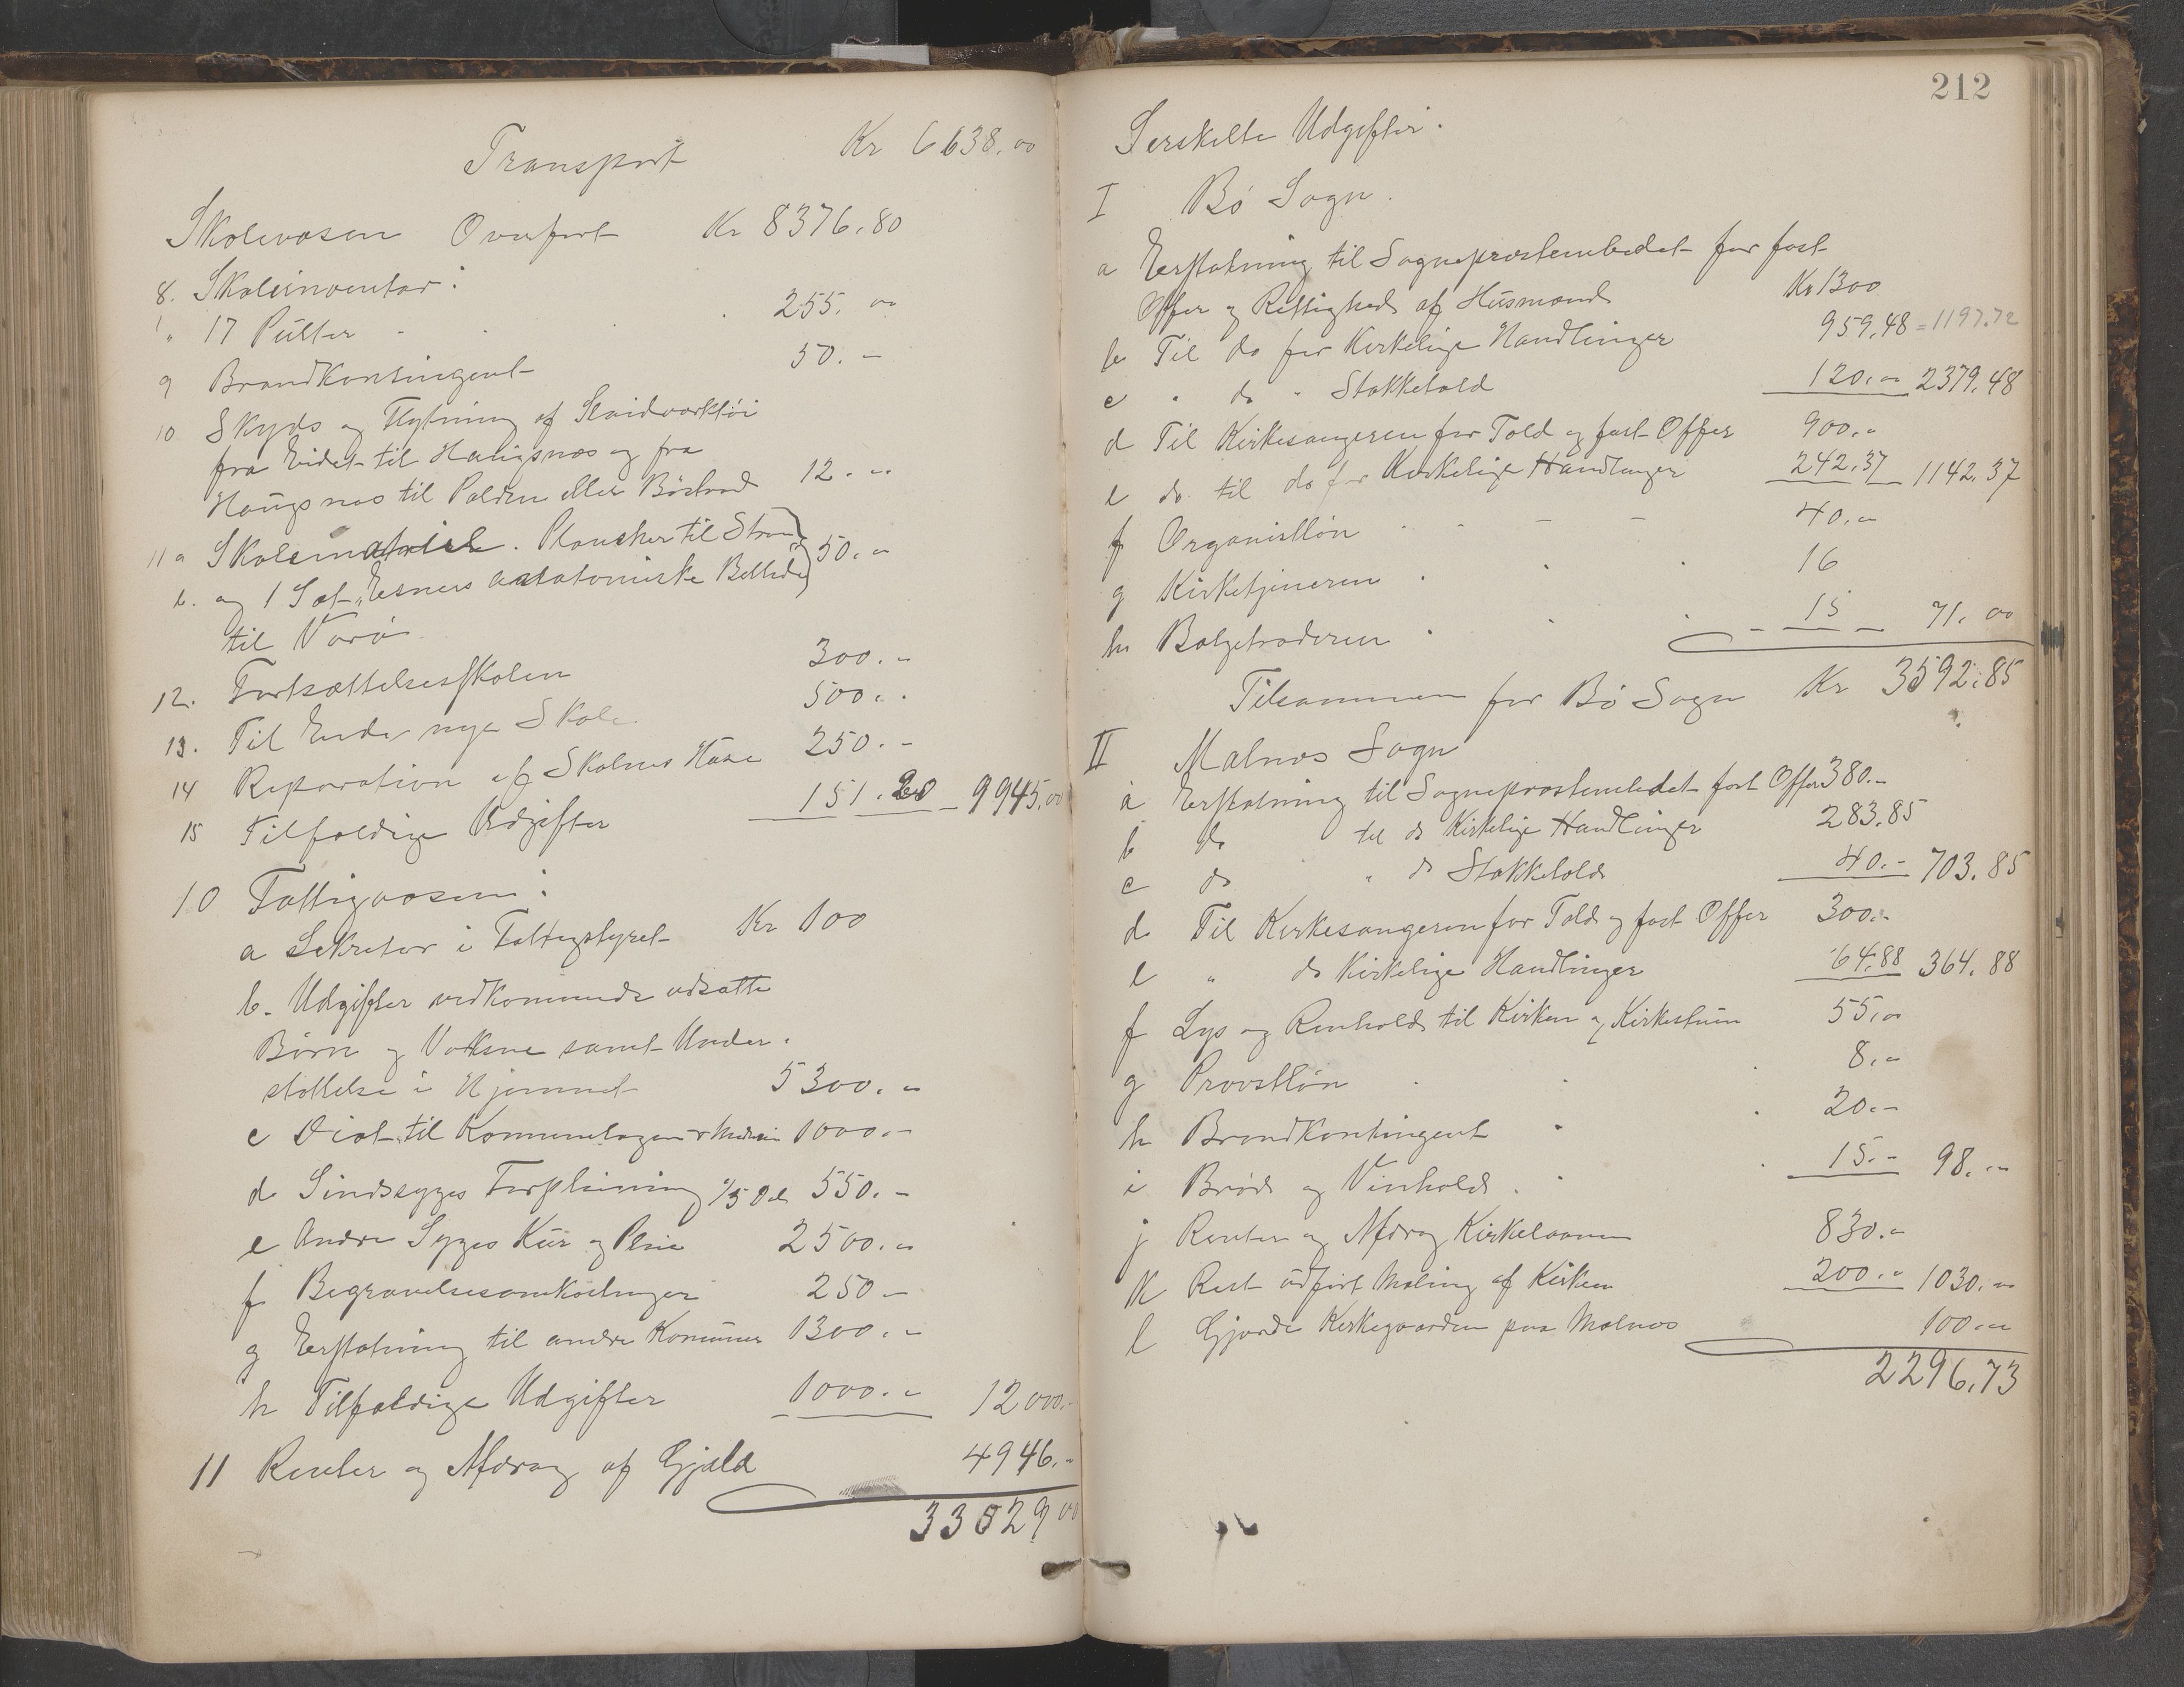 Transport Kr 6638.00
Skolevæsen Overført Kr 8376.80
8. Skoleinventar:
" 17 Pulter 255.00
9 Brandkontingent 50.-
10 Skyds og Flytning af Sløidværktøi
fra Eidet til Haugsnæs og fra
Haugsnæs til Palden eller Böstrad 12.-
11 a Skolemateriel. Plancher til Straume
b. og 1 Sæt Esners anatomiske Billeder 50.-
til Vorø
12. Fortsættelsesskolen 300.-
13. Til Eide nye Skole 500.-
14 Reparation af Skolens Huse 250.-
15 Tilfældige Udgifter 151.20 9945.00
10 Fattigvæsen:
a Sekretær i Fattigstyret Kr 100
b. Udgifter vedkommende udsatte
Børn og Voksne samt Under-
støttelse i Hjemmet 5300.-
c Diæt til Kommunelægen + Medisin 1000.-
d Sindssyges Forpleining 1/5 Del 550.-
e Andre Syges Kur og Pleie 2500.-
f Begravelsesomkostninger 250-
g Erstatning til andre Kommuner 1300.-
h Tilfældige Udgifter 1000.- 12000.-
11 Renter og Afdrag af Gjæld 4946.-
33529 00
212
Særskilte Udgifter.
I Bø Sogn.
a Erstatning til Sogneprestembedet for fast
Offer og Rettighed af Husmænd Kr 1300
b Til do for Kirkelige Handlinger 959,48 = 1197.72
c " do " Stakketold 120.- 2379.48
d Til Kirkesangeren for Told og fast Offer 900.-
e do til do for Kirkelige Handlinger 242.37 1142.37
f Organistløn 40.-
g Kirketjeneren 16
h Bælgetræderen 15 71.00
Tilsammen for Bø Sogn Kr 3592.85
II Malnæs Sogn
a Erstatning til Sogneprestembedet fast Offer 380.-
b do til do Kirkelige Handlinger 283.85
c do " do Stakketold 40.- 703.85
d Til Kirkesangeren for Told og fast Offer 300.-
e " do Kirkelige Handlinger 64.88 364.88
f Lys og Renhold til Kirken og Kirkestuen 55.00
g Provstløn 8.-
h Brandkontingent 20.-
i Brød og Vinhold 15.- 98.-
j Renter og Afdrag Kirkelaanet 830.-
k Rest udført Maling af Kirken 200.- 1030.-
l Gjærde Kirkegaarden paa Malnæs 100.-
2296.73